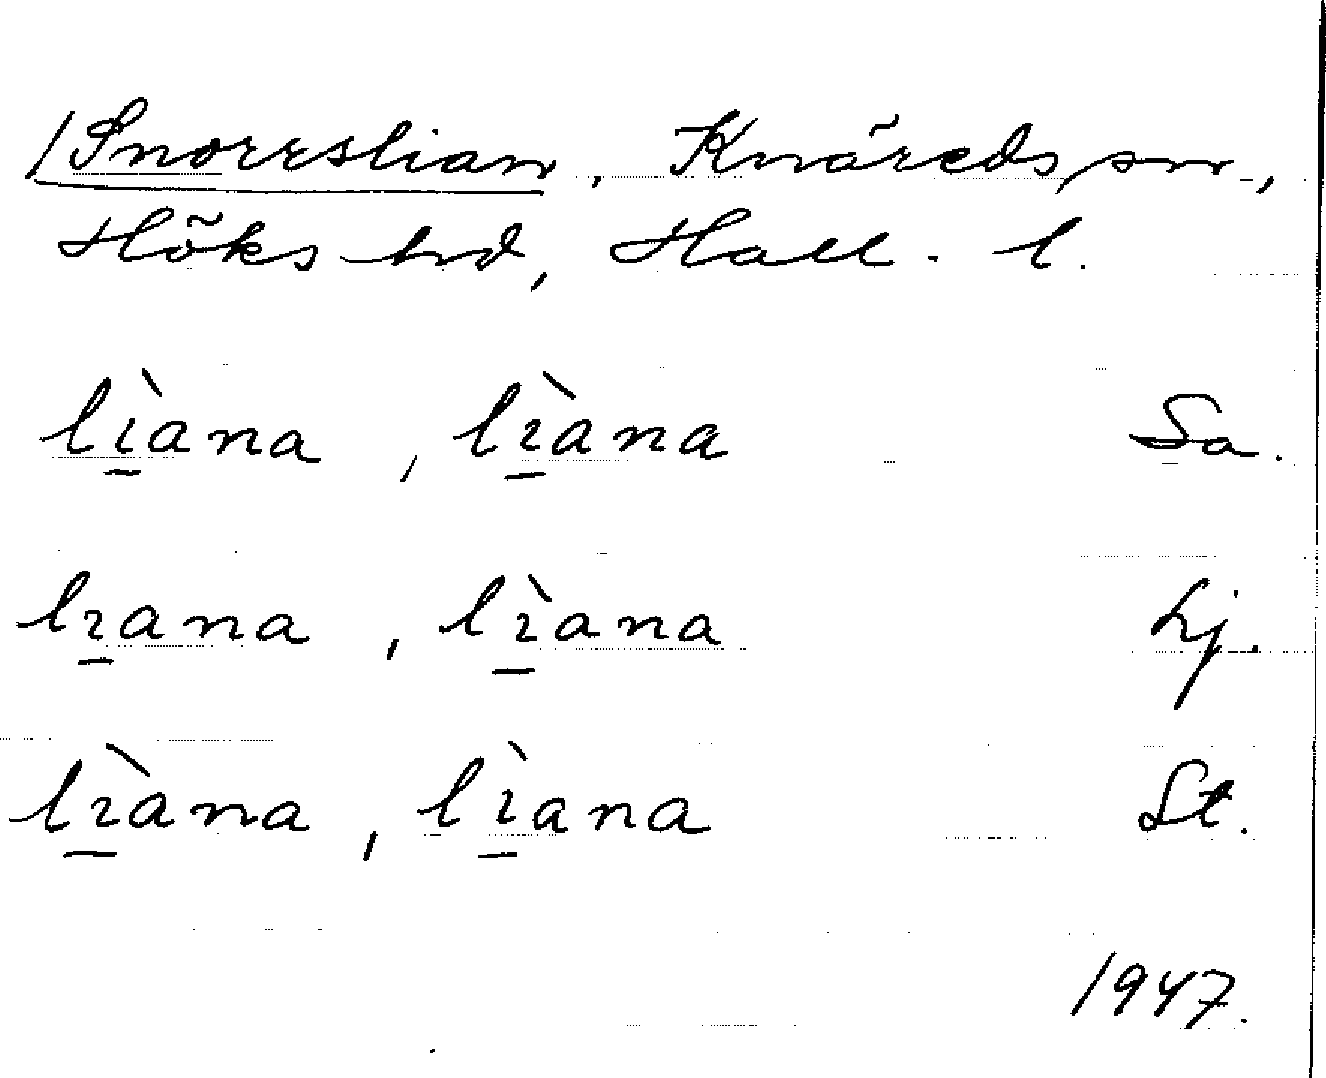 /Snorrslian, Knäreds sn.,
Höks hd, Hall. l.
lìana, lìana Sa.
lıana, lìana Lj.
lìana, lìana St.
1947.